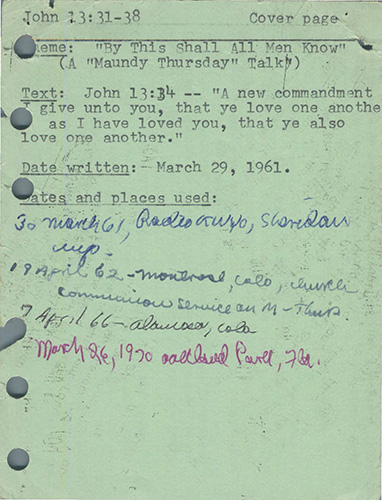 John 13:31-38 Cover page
Theme: "By This Shall All Men Know"
(A "Maundy Thursday" Talk")
Text: John 13:34 -- "A new commandment
I give unto you, that ye love one anothe
as I have loved you, that ye also
love one another."
Date written: March 29, 1961.
Dates and places used:
30 March 61, Radio KWYO, Sheridan
Wyo.
19 April 62 - Montrose, Colo, church
communion service on M - Thurs.
7 April 66 - Alamosa, Colo
March 26, 1970 Oakland Park, Fla.